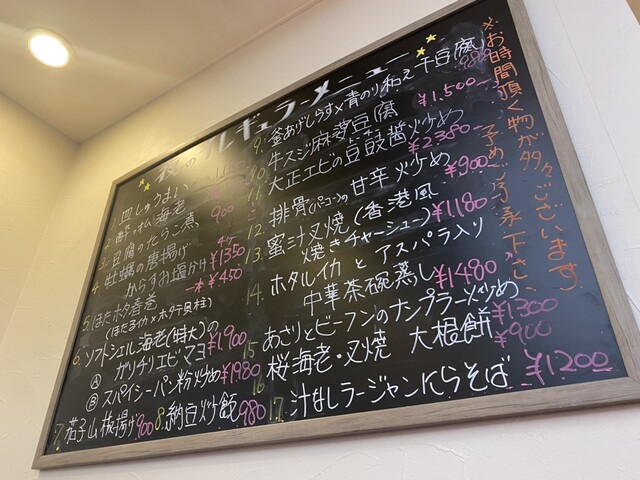 夜のレギュラーメニュー
1. 皿しゅうまい
2. 酔っぱ海老 900
3. 豆腐のたらこ煮
4. 牡蠣の唐揚げ 4ヶ ¥1350
からすお塩かけ 一ヶ ¥450
5. ほたホタ春巻
(ほたるイカ×ホタテ貝柱)
6. ソフトシェル海老(特大)の
Ⓐ ガリチリエビマヨ ¥1,900
Ⓑ スパイシーパン粉炒め ¥1,980
7. 茄子山椒揚げ 900
8. 納豆炒飯 980
9. 釜あげしらす×青のり和え干豆腐 980
10. 牛スジ麻婆豆腐 ¥1,500
11. 大正エビの豆鼓醤炒め ¥2380
12. 排骨(パーコー)の甘辛炒め ¥900
13. 蜜汁叉焼(香港風
焼きチャーシュー) ¥1,180
14. ホタルイカとアスパラ入り
中華茶碗蒸し ¥1480
15. あさりとビーフンのナンプラー炒め ¥1300
16. 桜海老・叉焼 大根餅 ¥900
17. 汁なしラージャンにらそば ¥1200
※お時間頂く物が多々ございます
予めご了承下さい